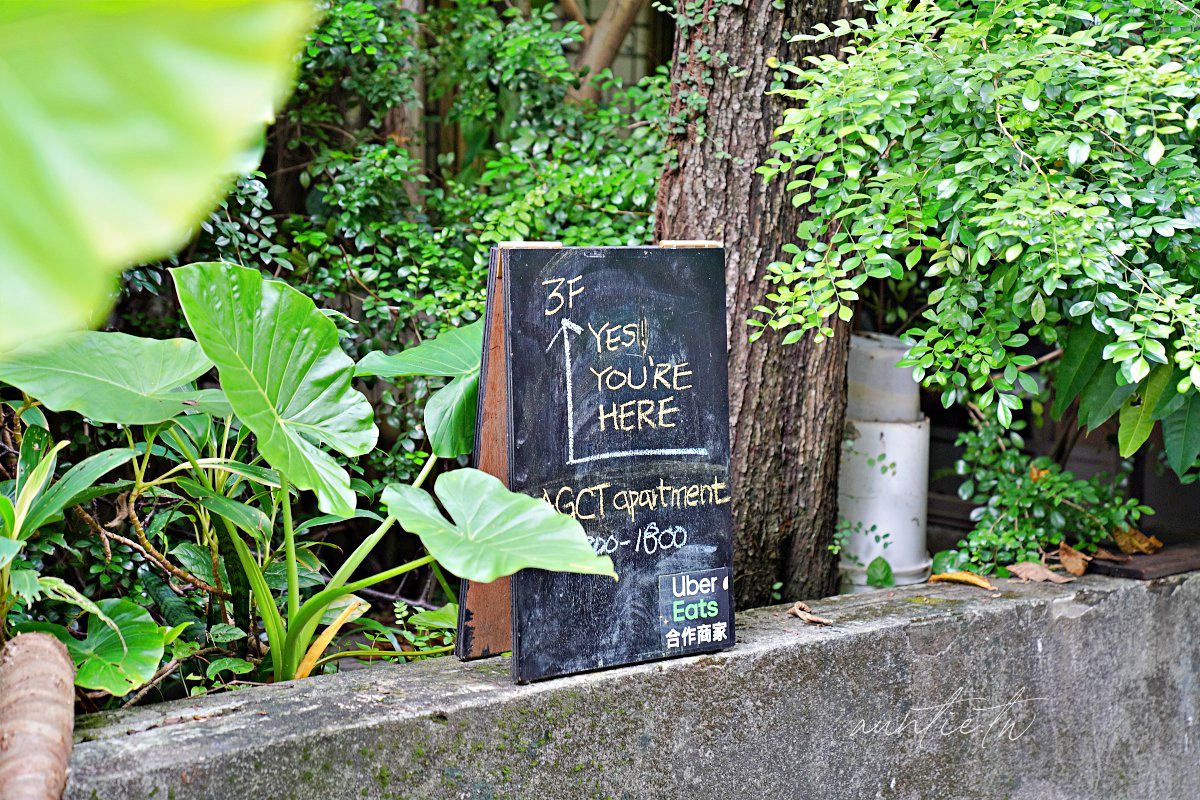 3F
YES!!
YOU'RE
HERE
AGCT apartment
00-1800
Uber
Eats
合作商家
auntie.tw